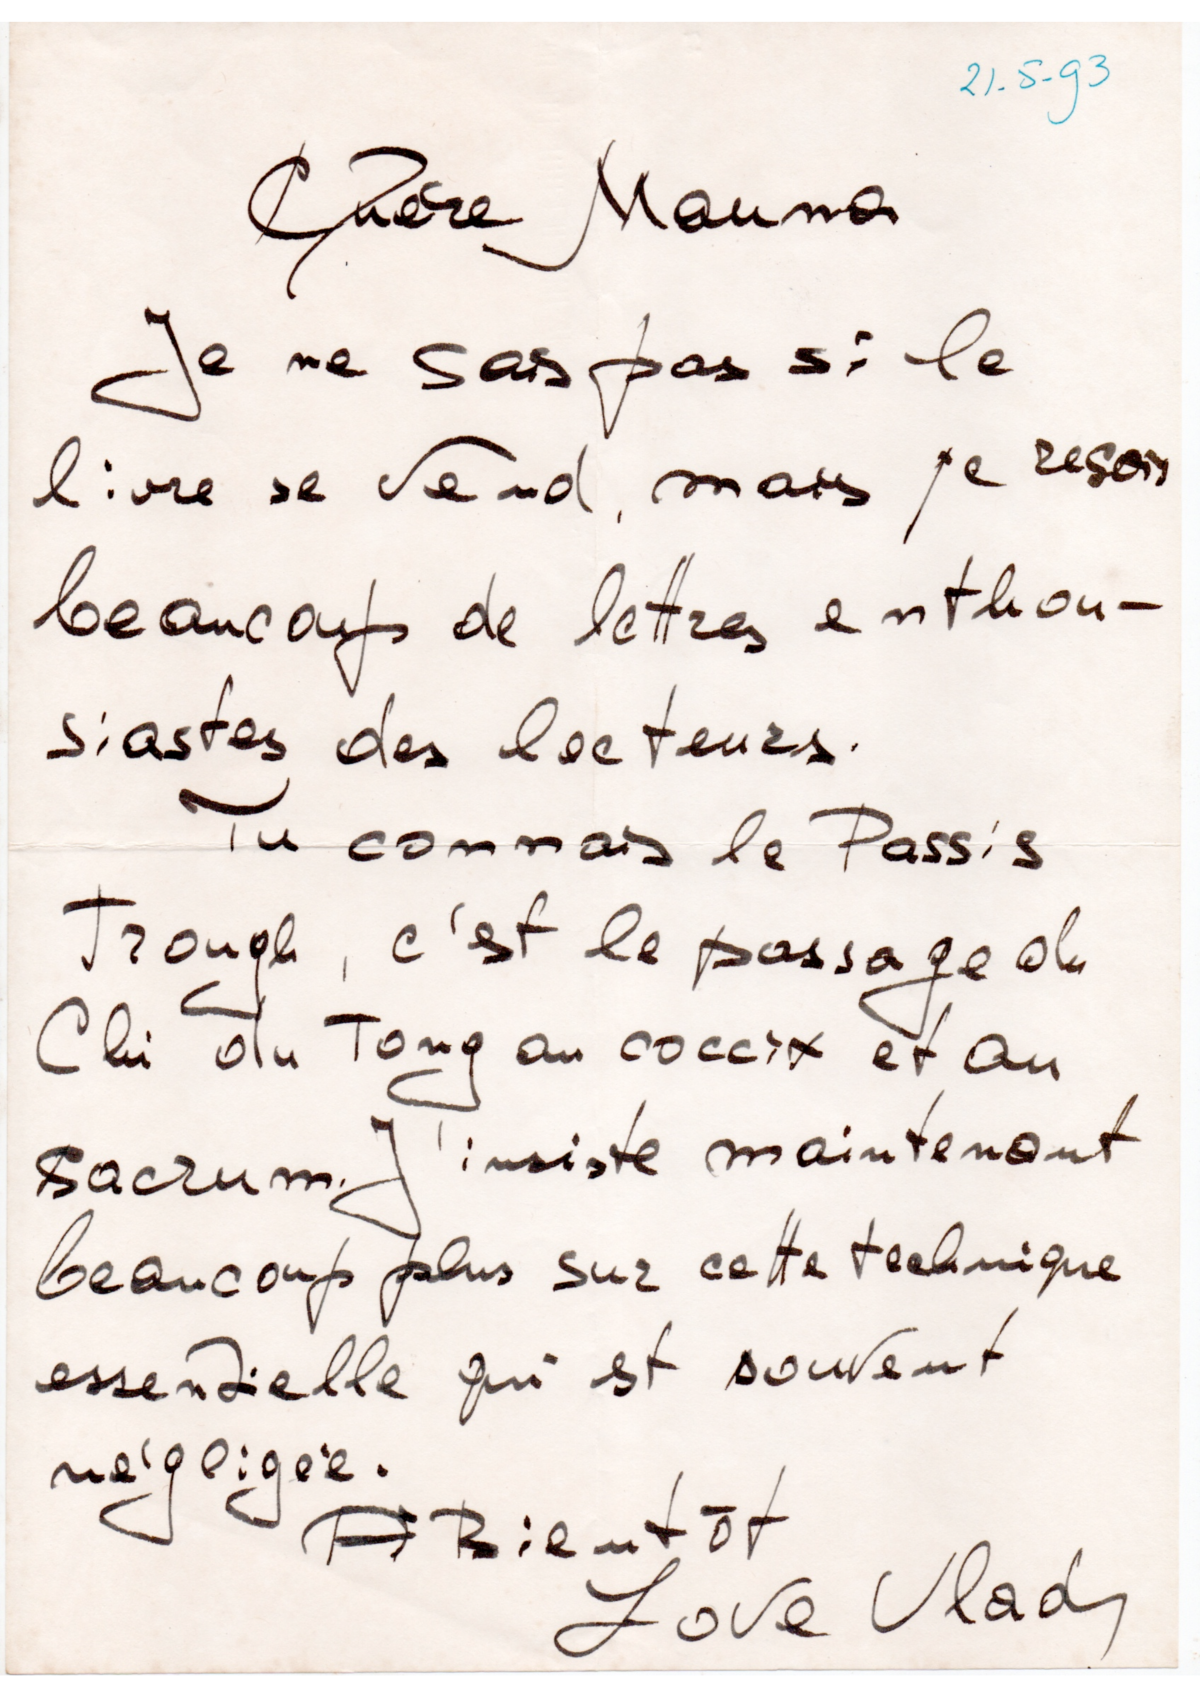 21-5-93
Chère Mouna
Je ne sais pas si le
livre se vend, mais je resois
beaucoup de lettres enthou-
siastes des lecteurs.
Tu connais le Passis
Trough, c'est le passage du
Chi du Tong au coccix et au
sacrum. J'insiste maintenant
beaucoup plus sur cette technique
essentielle qui est souvent
négligée.
A Bientôt
Love Vlady